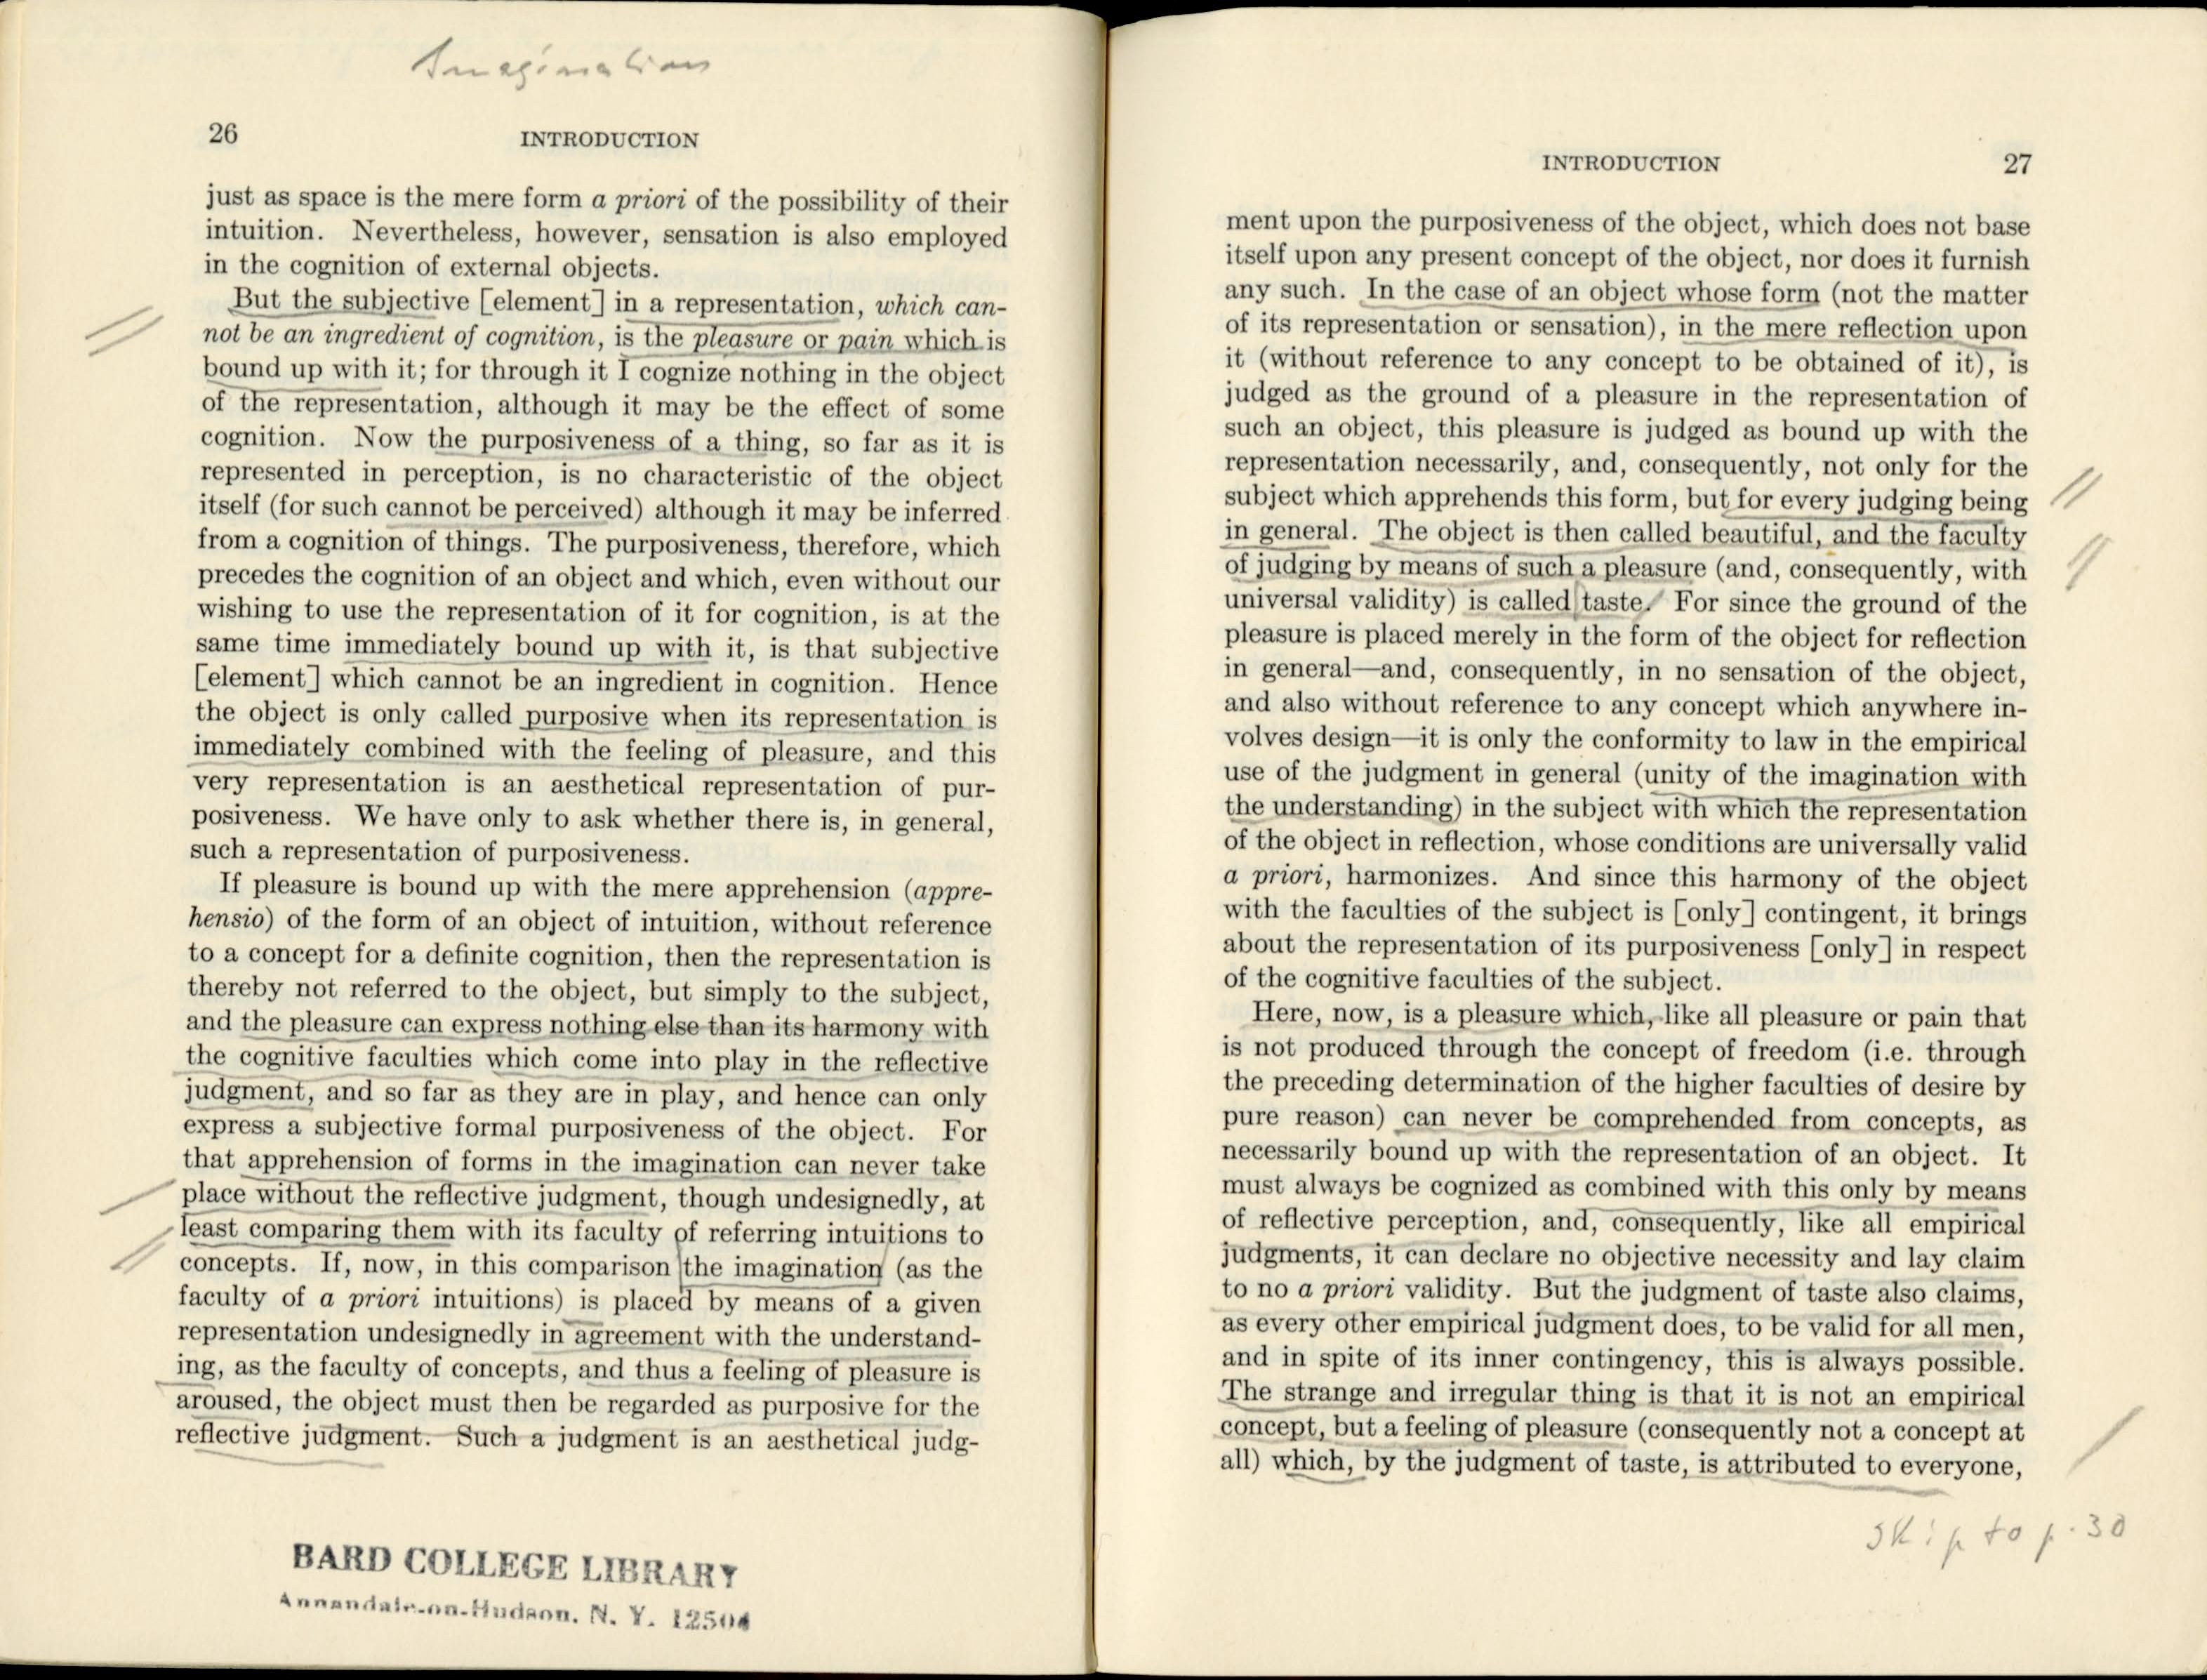 Imagination
26
INTRODUCTION
just as space is the mere form a priori of the possibility of their
intuition. Nevertheless, however, sensation is also employed
in the cognition of external objects.
But the subjective [element] in a representation, which can-
not be an ingredient of cognition, is the pleasure or pain which is
bound up with it; for through it I cognize nothing in the object
of the representation, although it may be the effect of some
cognition. Now the purposiveness of a thing, so far as it is
represented in perception, is no characteristic of the object
itself (for such cannot be perceived) although it may be inferred
from a cognition of things. The purposiveness, therefore, which
precedes the cognition of an object and which, even without our
wishing to use the representation of it for cognition, is at the
same time immediately bound up with it, is that subjective
[element] which cannot be an ingredient in cognition. Hence
the object is only called purposive when its representation is
immediately combined with the feeling of pleasure, and this
very representation is an aesthetical representation of pur-
posiveness. We have only to ask whether there is, in general,
such a representation of purposiveness.
If pleasure is bound up with the mere apprehension (appre-
hensio) of the form of an object of intuition, without reference
to a concept for a definite cognition, then the representation is
thereby not referred to the object, but simply to the subject,
and the pleasure can express nothing else than its harmony with
the cognitive faculties which come into play in the reflective
judgment, and so far as they are in play, and hence can only
express a subjective formal purposiveness of the object. For
that apprehension of forms in the imagination can never take
place without the reflective judgment, though undesignedly, at
least comparing them with its faculty of referring intuitions to
concepts. If, now, in this comparison the imagination (as the
faculty of a priori intuitions) is placed by means of a given
representation undesignedly in agreement with the understand-
ing, as the faculty of concepts, and thus a feeling of pleasure is
aroused, the object must then be regarded as purposive for the
reflective judgment. Such a judgment is an aesthetical judg-
BARD COLLEGE LIBRARY
Annandale-on-Hudson, N. Y. 12504
INTRODUCTION
27
ment upon the purposiveness of the object, which does not base
itself upon any present concept of the object, nor does it furnish
any such. In the case of an object whose form (not the matter
of its representation or sensation), in the mere reflection upon
it (without reference to any concept to be obtained of it), is
judged as the ground of a pleasure in the representation of
such an object, this pleasure is judged as bound up with the
representation necessarily, and, consequently, not only for the
subject which apprehends this form, but for every judging being
in general. The object is then called beautiful, and the faculty
of judging by means of such a pleasure (and, consequently, with
universal validity) is called taste. For since the ground of the
pleasure is placed merely in the form of the object for reflection
in general—and, consequently, in no sensation of the object,
and also without reference to any concept which anywhere in-
volves design—it is only the conformity to law in the empirical
use of the judgment in general (unity of the imagination with
the understanding) in the subject with which the representation
of the object in reflection, whose conditions are universally valid
a priori, harmonizes. And since this harmony of the object
with the faculties of the subject is [only] contingent, it brings
about the representation of its purposiveness [only] in respect
of the cognitive faculties of the subject.
Here, now, is a pleasure which, like all pleasure or pain that
is not produced through the concept of freedom (i.e. through
the preceding determination of the higher faculties of desire by
pure reason) can never be comprehended from concepts, as
necessarily bound up with the representation of an object. It
must always be cognized as combined with this only by means
of reflective perception, and, consequently, like all empirical
judgments, it can declare no objective necessity and lay claim
to no a priori validity. But the judgment of taste also claims,
as every other empirical judgment does, to be valid for all men,
and in spite of its inner contingency, this is always possible.
The strange and irregular thing is that it is not an empirical
concept, but a feeling of pleasure (consequently not a concept at
all) which, by the judgment of taste, is attributed to everyone,
skip to p. 30